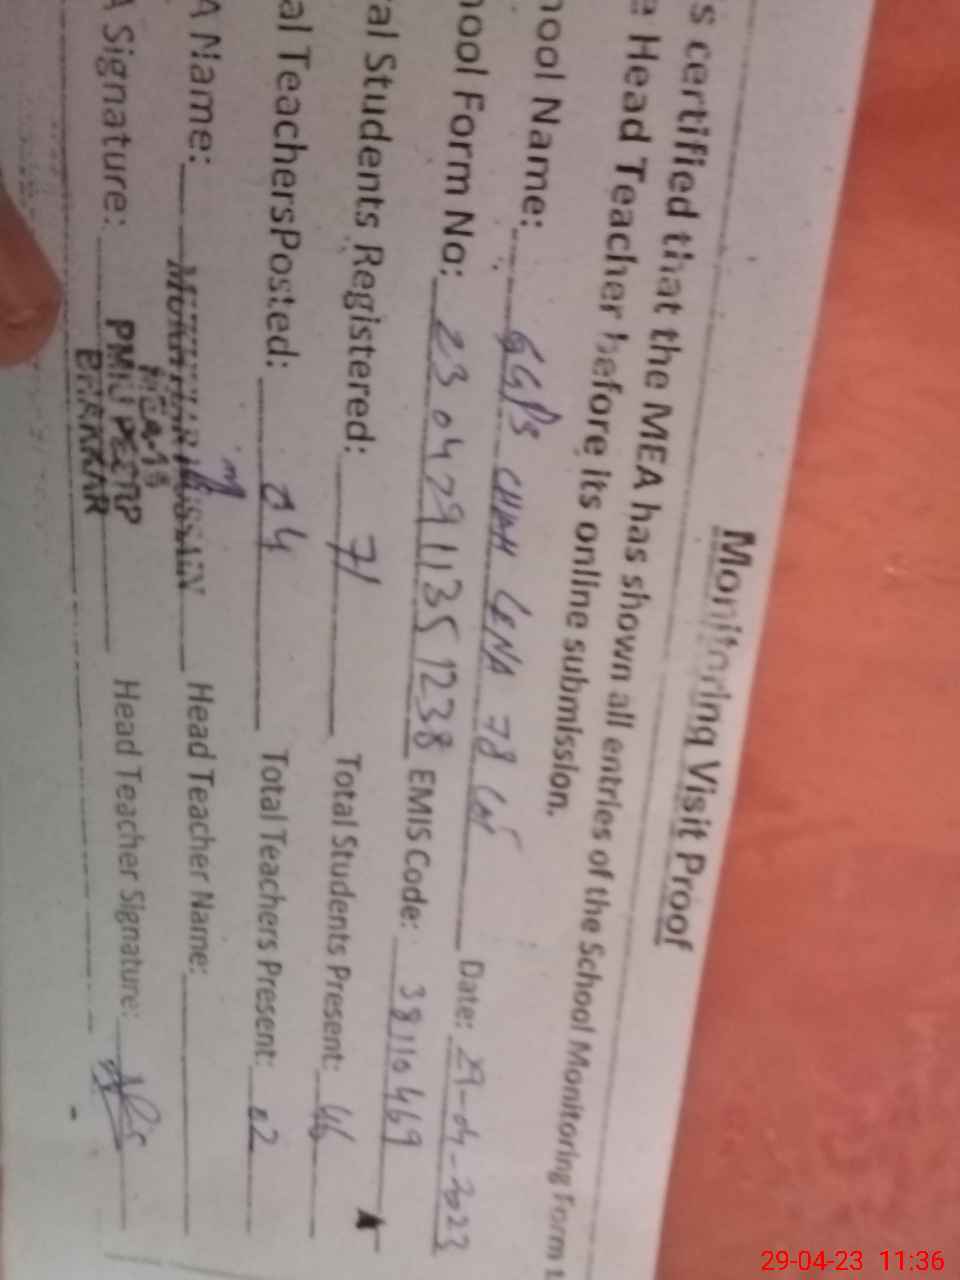 Monitoring Visit Proof
s certified that the MEA has shown all entries of the School Monitoring Form t
e Head Teacher before its online submission.
ool Name: GGPS CHAH LENA 78 Date: 29-04-2023
ool Form No: 23042911351238 EMIS Code: 38110469
al Students Registered: 71 Total Students Present: 46
al TeachersPosted: 04 Total Teachers Present: 02
A Name: Head Teacher Name:
MEA-15
A Signature: PMIU Head Teacher Signature:
BHAKKAR
29-04-23 11:36